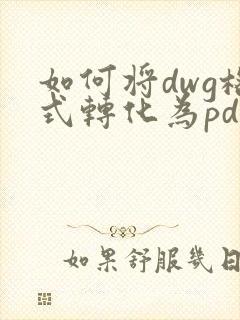 如何将dwg格
式轉化為pd
如果舒服幾日